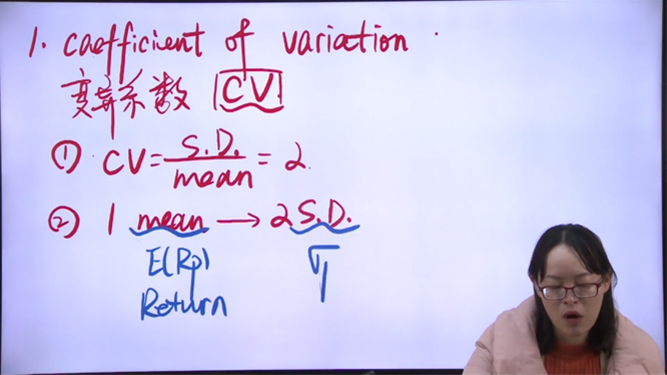 1. coefficient of variation
变异系数 CV
① CV = S.D. / mean = 2
② 1 mean → 2 S.D.
E(Rp) σ
Return